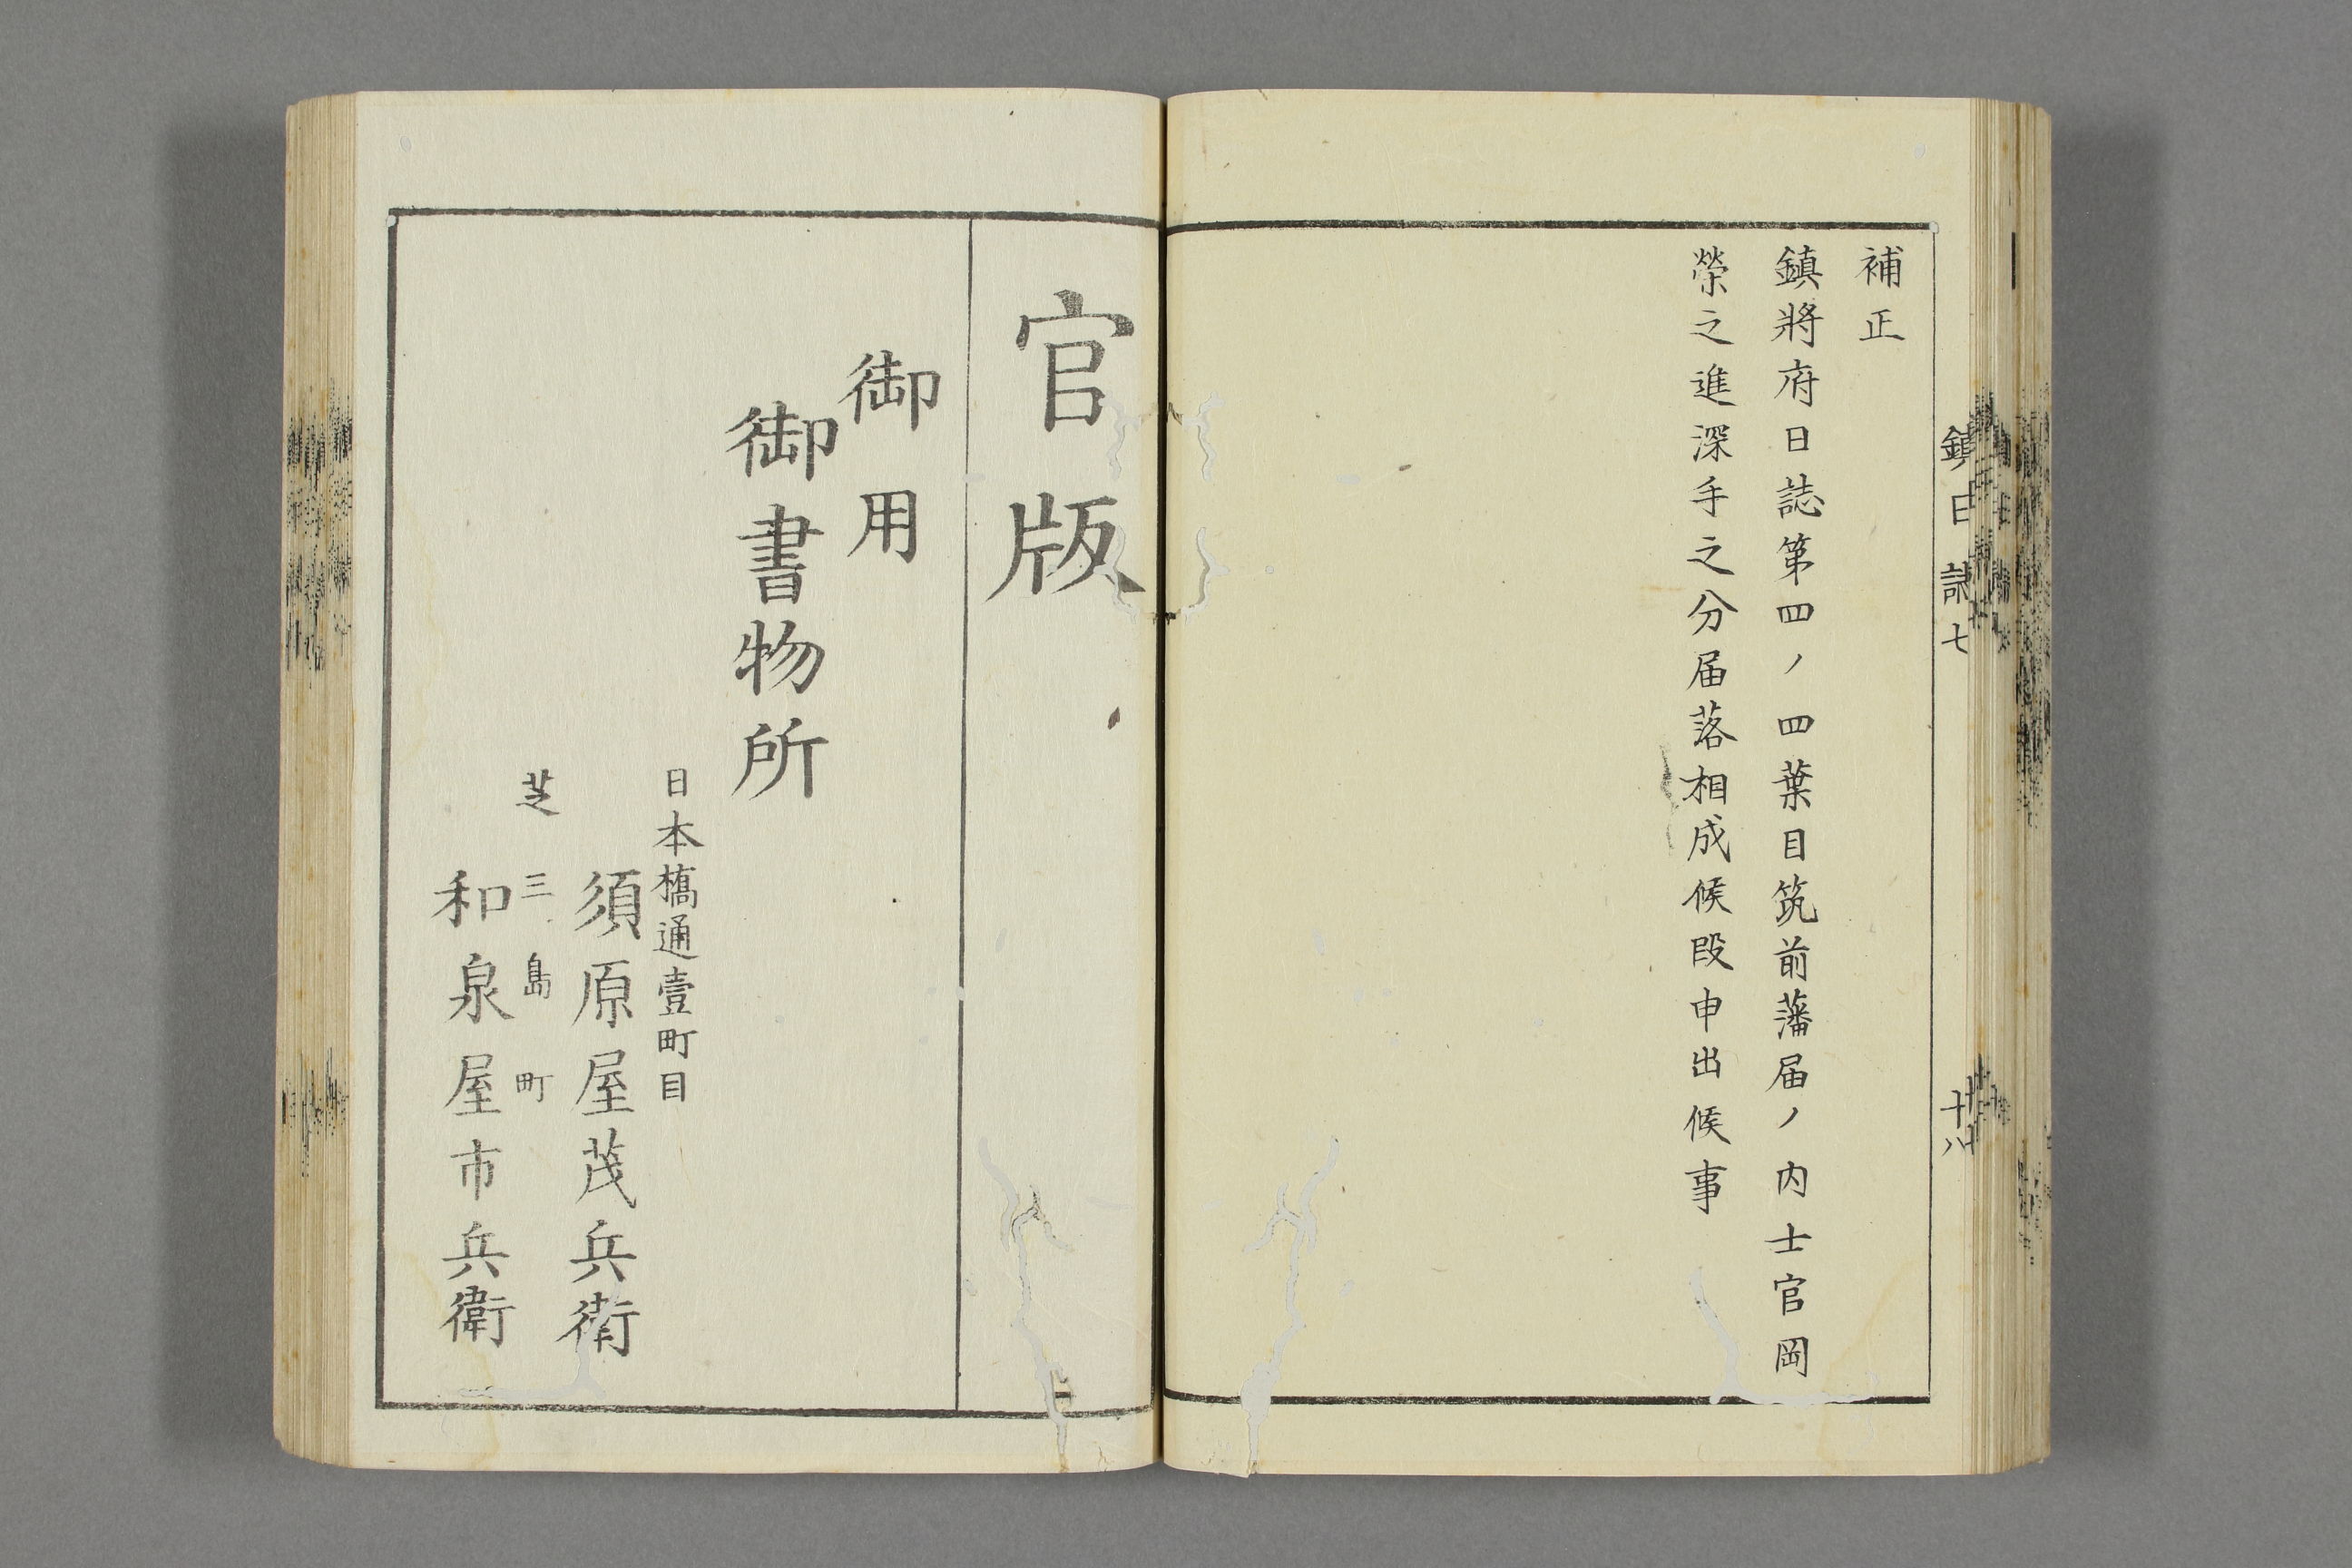 補正
鎮將府日誌第四ノ四葉目筑前藩届ノ内士官岡
榮之進深手之分届落相成候段申出候事
鎮日誌七
十八
官版
御用
御書物所
日本橋通壹町目
須原屋茂兵衛
芝三島町
和泉屋市兵衛